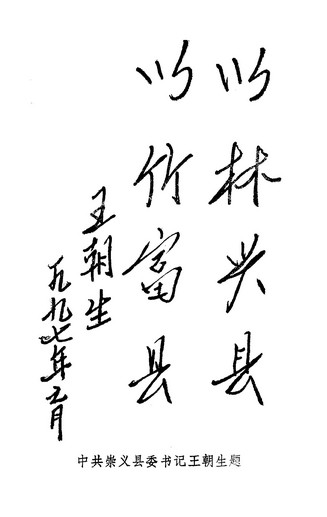 以林兴县
以竹富县
王朝生
一九九七年二月
中共崇义县委书记王朝生题